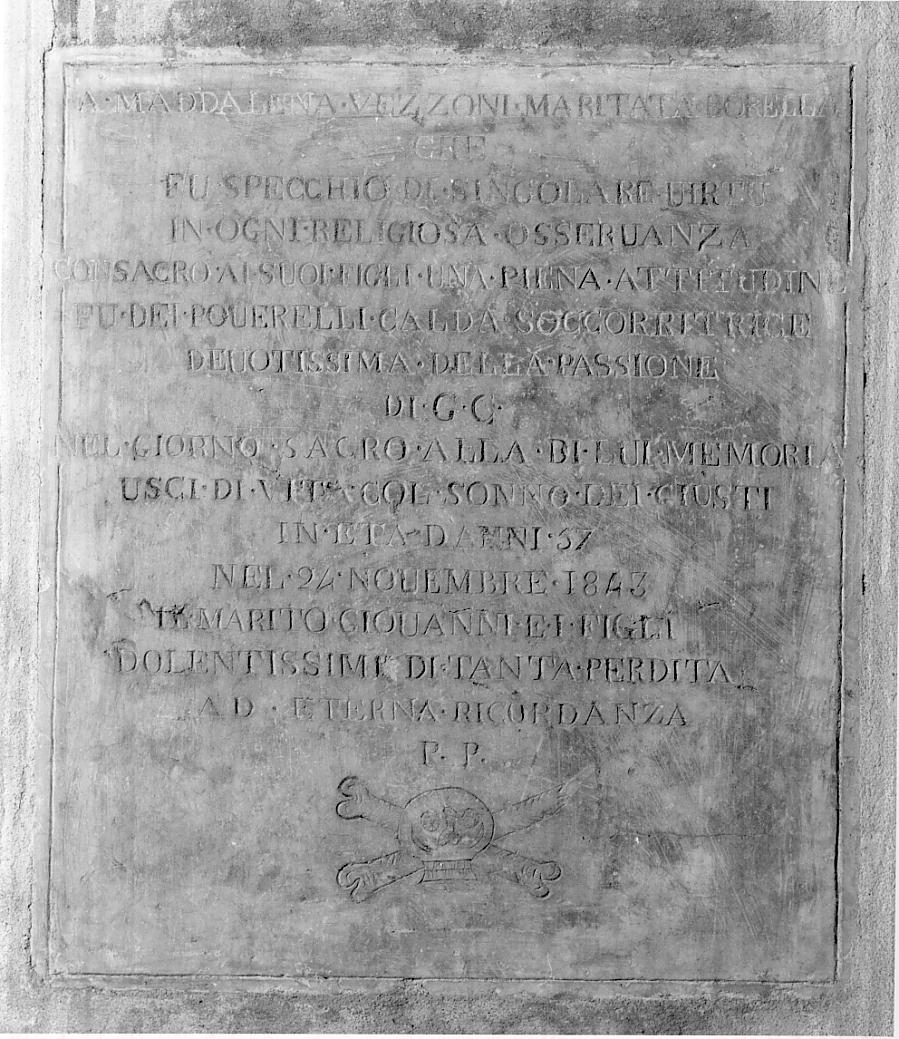 A·MADDALENA·VEZZONI·MARITATA·BORELLA
CHE
FU·SPECCHIO·DI·SINGOLARE·UIRTU
IN·OGNI·RELIGIOSA·OSSERUANZA
CONSACRO·AI·SUOI·FIGLI·UNA·PIENA·ATTITUDINE
FU·DEI·POUERELLI·CALDA·SOCCORRITRICE
DEUOTISSIMA·DELLA·PASSIONE
DI·G·C·
NEL·GIORNO·SACRO·ALLA·BI·LUI·MEMORIA
USCI·DI·VITA·COL·SONNO·DEI·GIUSTI
IN·ETA·DANNI·57
NEL·24·NOUEMBRE·1843
IL·MARITO·GIOUANNI·E·I·FIGLI
DOLENTISSIMI·DI·TANTA·PERDITA
AD·ETERNA·RICORDANZA
P. P.